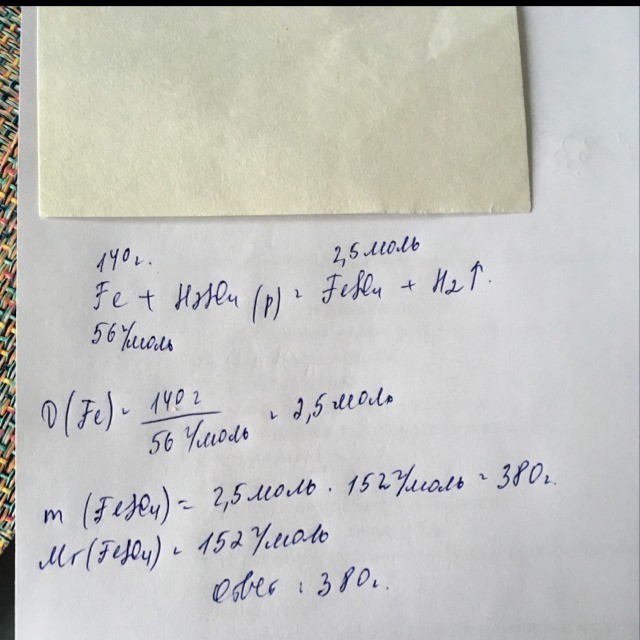 140 г. 2,5 моль
Fe + H2SO4 (р) = FeSO4 + H2↑.
56 г/моль
υ(Fe) = 140 г / 56 г/моль = 2,5 моль
m (FeSO4) = 2,5 моль · 152 г/моль = 380 г.
Mr (FeSO4) = 152 г/моль
Ответ : 380 г.